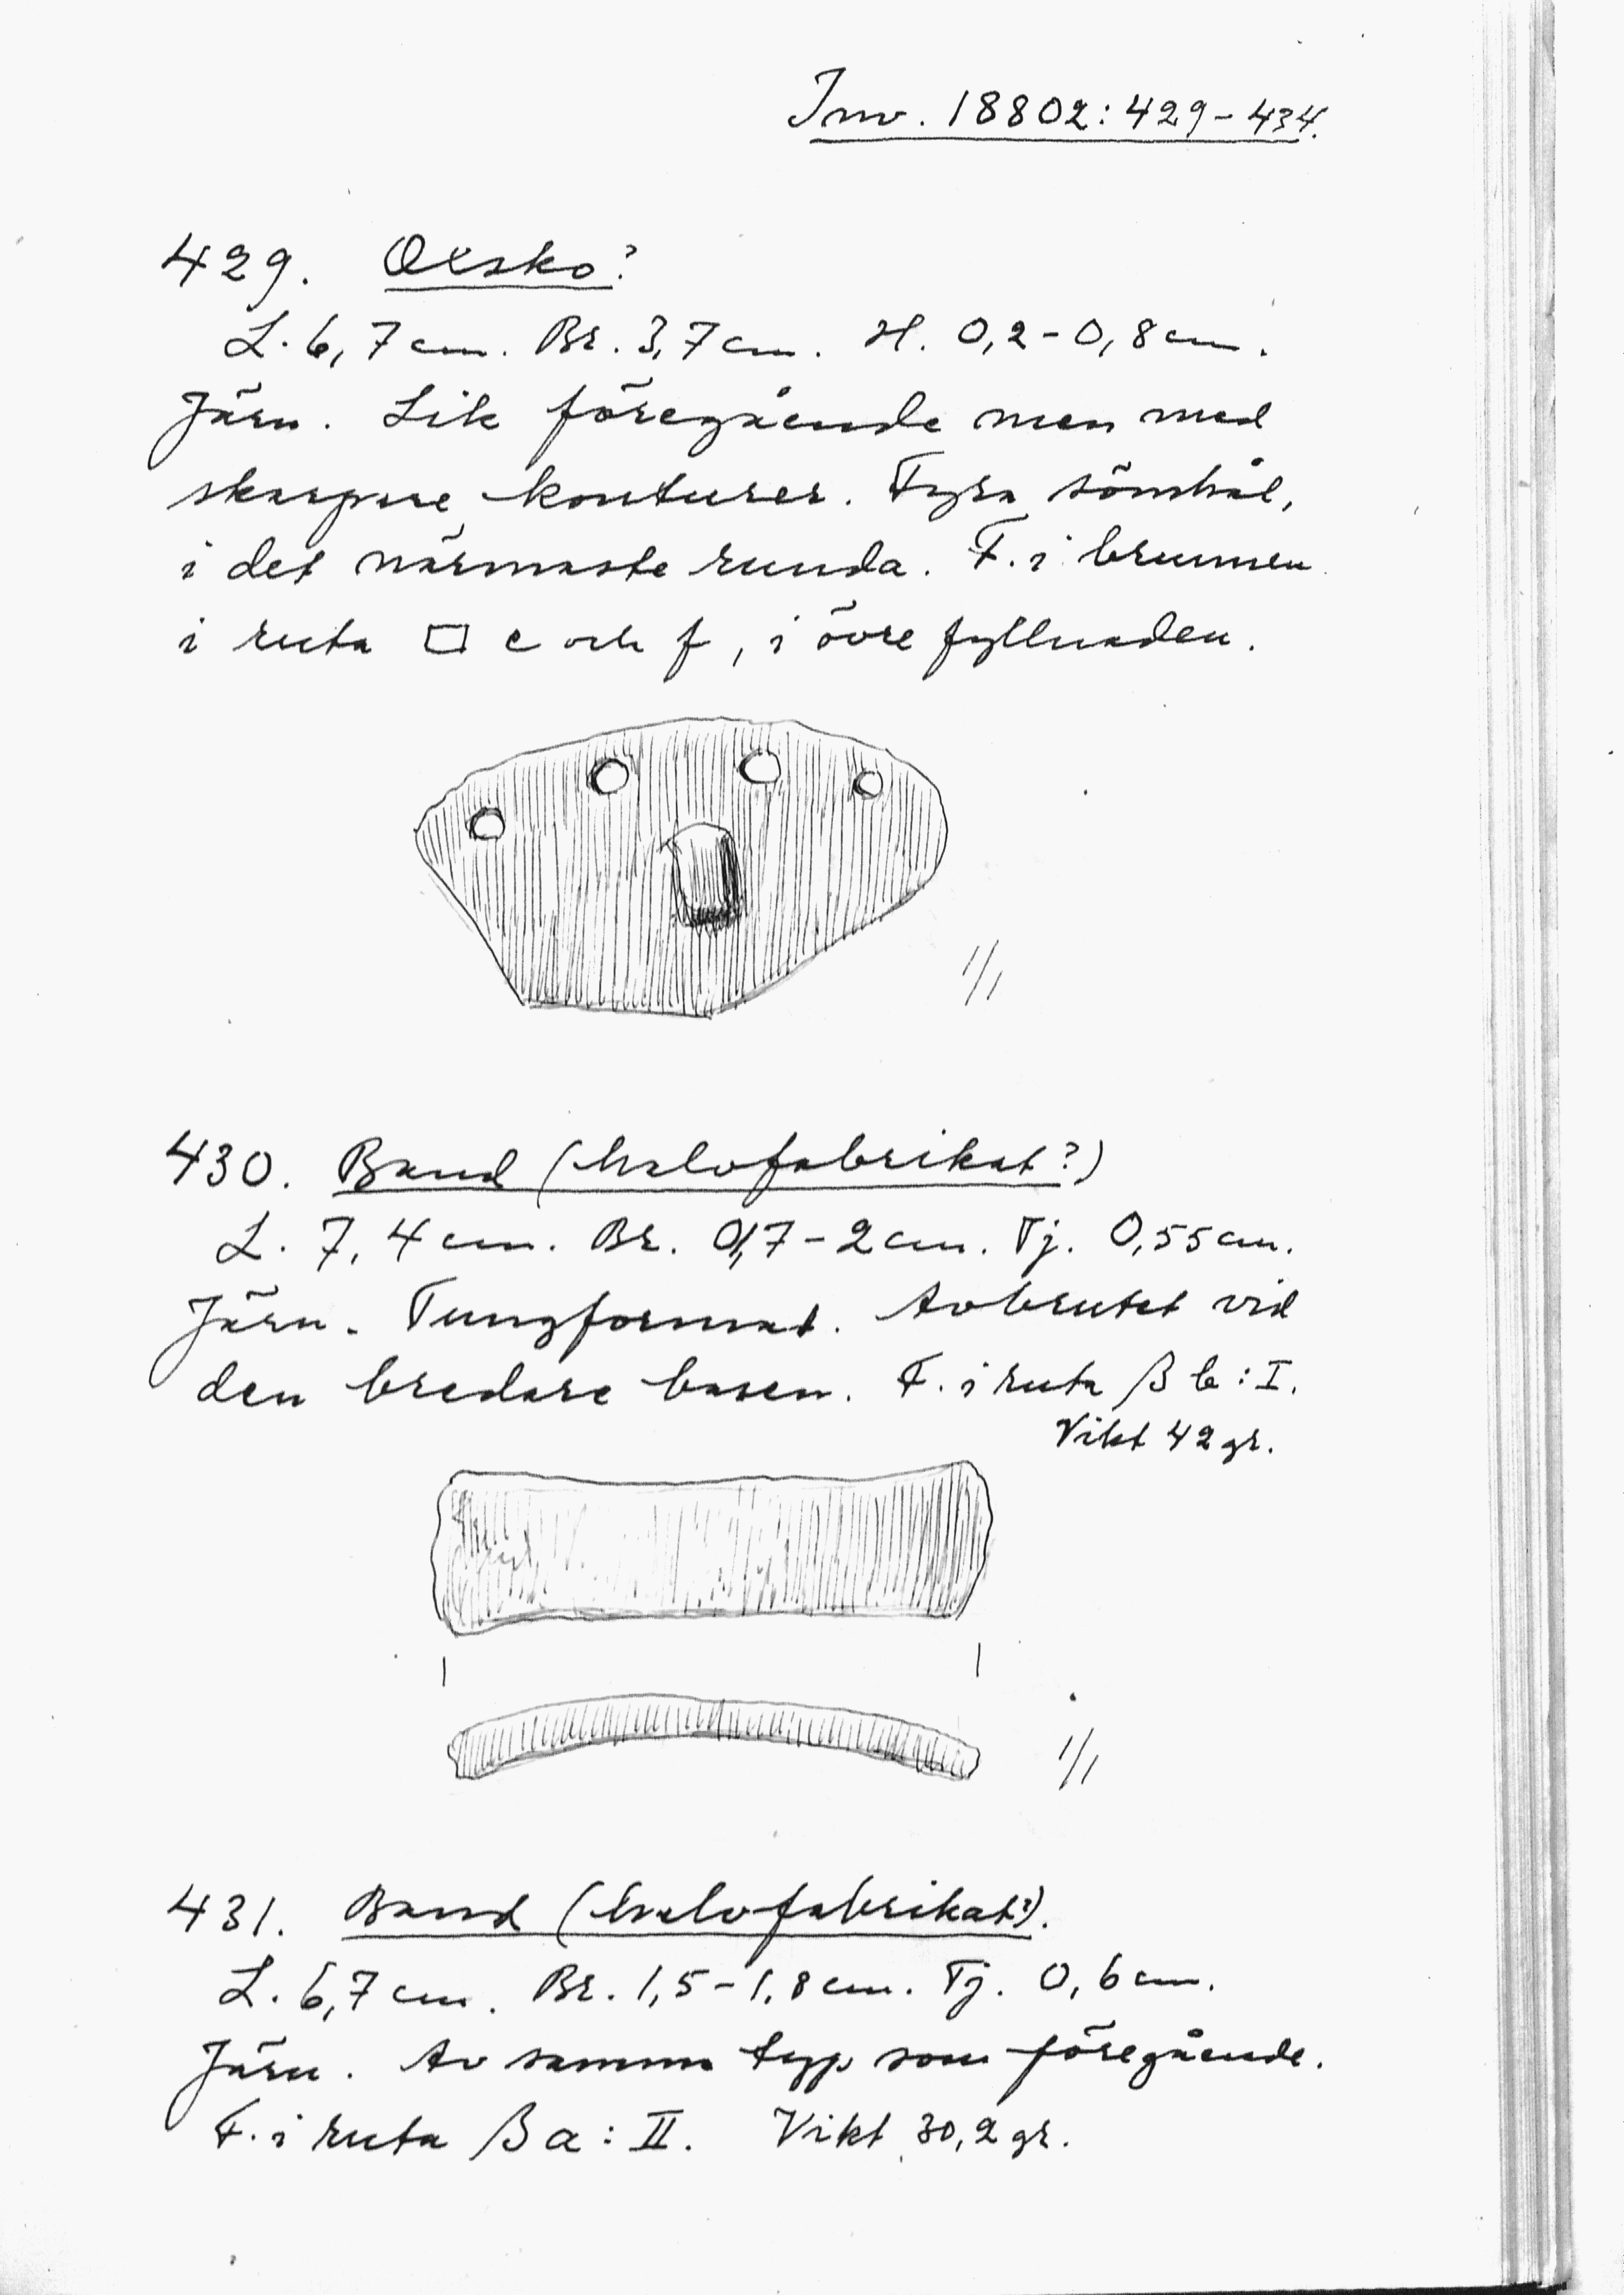 Inv. 18802: 429-434.
429. Oxsko?
L. 6,7 cm. Br. 3,7 cm. H. 0,2-0,8 cm.
Järn. Lik föregående men med
skarpare konturer. Fyra sömhål,
i det närmaste runda. F. i brunnen
i ruta □ e och f, i övre fyllnaden.
1/1
430. Band (halvfabrikat?)
L. 7,4 cm. Br. 0,7-2 cm. Tj. 0,55 cm.
Järn. Tungformat. Avbrutet vid
den bredare basen. F. i ruta β b: I.
Vikt 42 gr.
1/1
431. Band (halvfabrikat?).
L. 6,7 cm. Br. 1,5-1,8 cm. Tj. 0,6 cm.
Järn. Av samma typ som föregående.
F. i ruta β a: II. Vikt 30,2 gr.